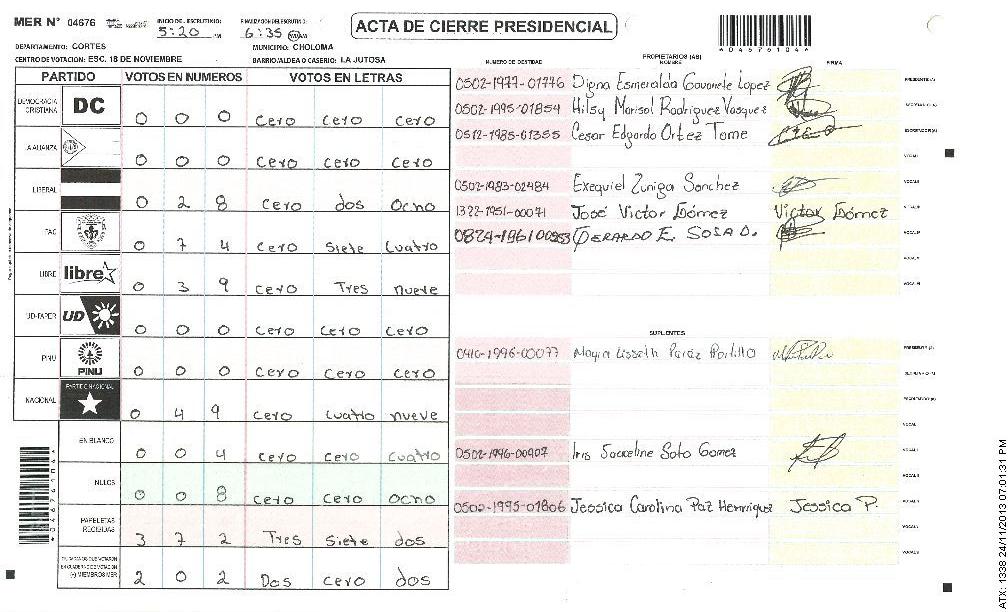 MER N° 04676
INICIO DEL ESCRUTINIO:
5:20 PM
FINALIZACION DEL ESCRUTINIO:
6:35
ACTA DE CIERRE PRESIDENCIAL
04676104
DEPARTAMENTO: CORTES
MUNICIPIO: CHOLOMA
CENTRO DE VOTACION: ESC. 18 DE NOVIEMBRE
BARRIO/ALDEA O CASERIO: LA JUTOSA
PARTIDO VOTOS EN NUMEROS VOTOS EN LETRAS
DEMOCRACIA CRISTIANA DC 0 0 0 Cero Cero Cero
LA ALIANZA 0 0 0 Cero Cero Cero
LIBERAL 0 2 8 Cero dos Ocho
PAC 0 7 4 Cero Siete Cuatro
LIBRE libre 0 3 9 Cero Tres nueve
UD-FAPER UD 0 0 0 Cero Cero Cero
PINU PINU 0 0 0 Cero Cero Cero
NACIONAL PARTIDO NACIONAL 0 4 9 Cero Cuatro nueve
EN BLANCO 0 0 4 Cero Cero Cuatro
NULOS 0 0 8 Cero Cero Ocho
PAPELETAS RECIBIDAS 3 7 2 Tres Siete dos
CIUDADANOS QUE VOTARON EN CUADERNO DE VOTACION (+) MIEMBROS MER 2 0 2 Dos Cero dos
PROPIETARIOS (AS)
NUMERO DE IDENTIDAD NOMBRE FIRMA
0502-1977-01776 Digna Esmeralda Gavarrete Lopez PRESIDENTE (A)
0502-1995-01854 Hilsy Marisol Rodriguez Vasquez SECRETARIO (A)
0512-1985-01355 Cesar Edgardo Ortez Tome ESCRUTADOR (A)
VOCAL I
0502-1983-02484 Exequiel Zuniga Sanchez VOCAL II
1322-1951-00071 José Victor Gómez Victor Gómez
0824-1961-00553 GERARDO E. SOSA O.
SUPLENTES
0410-1996-00077 Mayra Lisseth Peréz Portillo PRESIDENTE (A)
ESCRUTADOR (A)
VOCAL I
0502-1996-00907 Iris Jacceline Soto Gomez
0502-1995-01806 Jessica Carolina Paz Henriquez Jessica P.
ATX: 1338 24/11/2013 07:01:31 PM